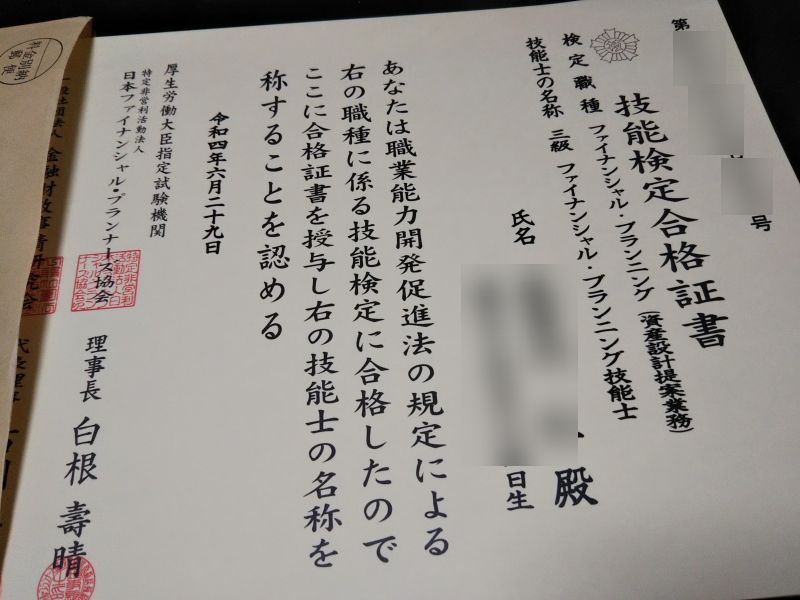 第
号
技能検定合格証書
検定職種 ファイナンシャル・プランニング(資産設計提案業務)
技能士の名称 三級 ファイナンシャル・プランニング技能士
氏名
殿
日生
あなたは職業能力開発促進法の規定による
右の職種に係る技能検定に合格したので
ここに合格証書を授与し右の技能士の名称を
称することを認める
令和四年六月二十九日
厚生労働大臣指定試験機関
特定非営利活動法人
日本ファイナンシャル・プランナーズ協会
理事長 白根 壽晴
料金別納
郵便
一般社団法人 金融財政事情研究会